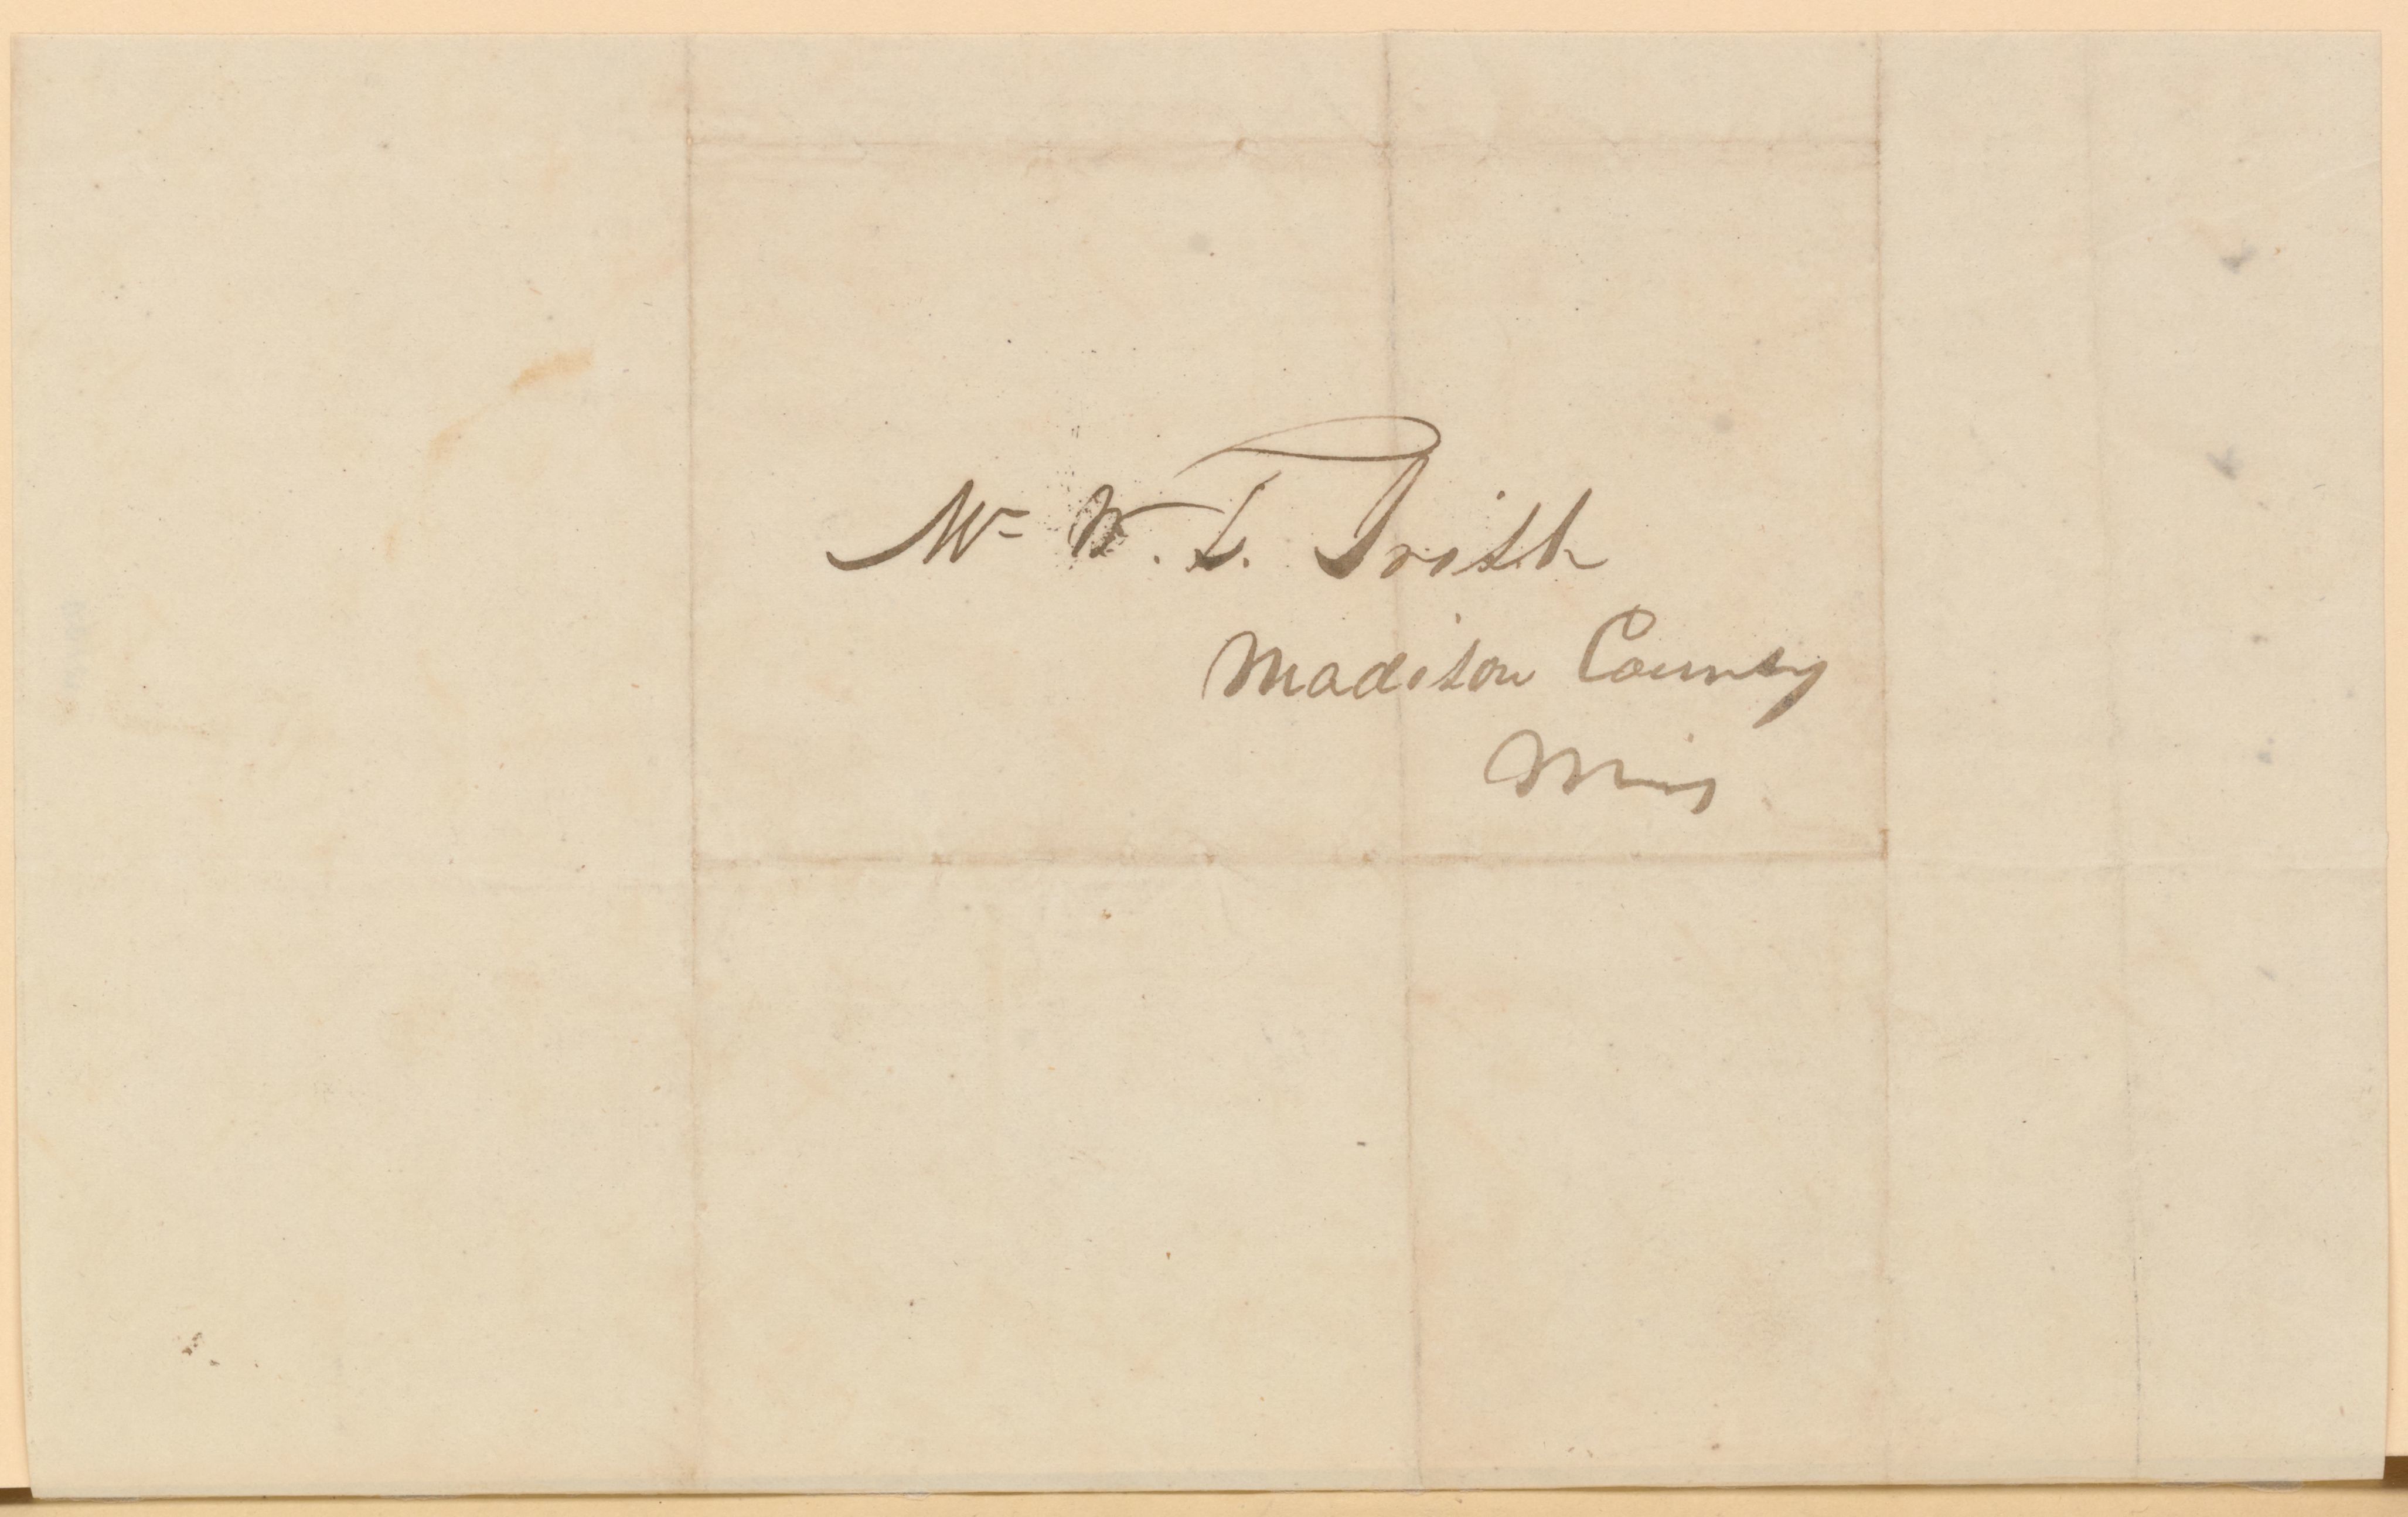 Mr W. L.
Madison County
Miss